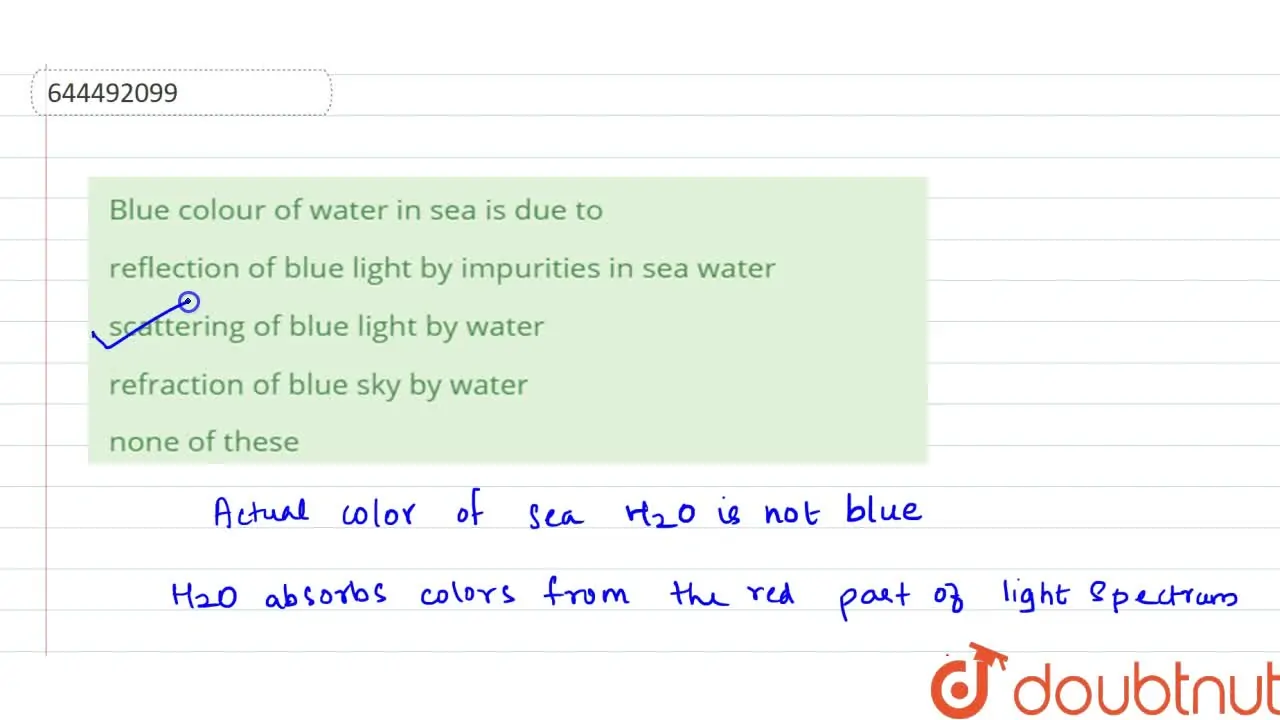 644492099
Blue colour of water in sea is due to
reflection of blue light by impurities in sea water
scattering of blue light by water
refraction of blue sky by water
none of these
Actual color of sea H2O is not blue
H2O absorbs colors from the red part of light spectrum
doubtnut